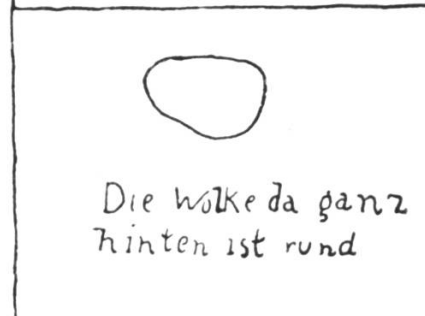 Die Wolke da ganz
hinten ist rund